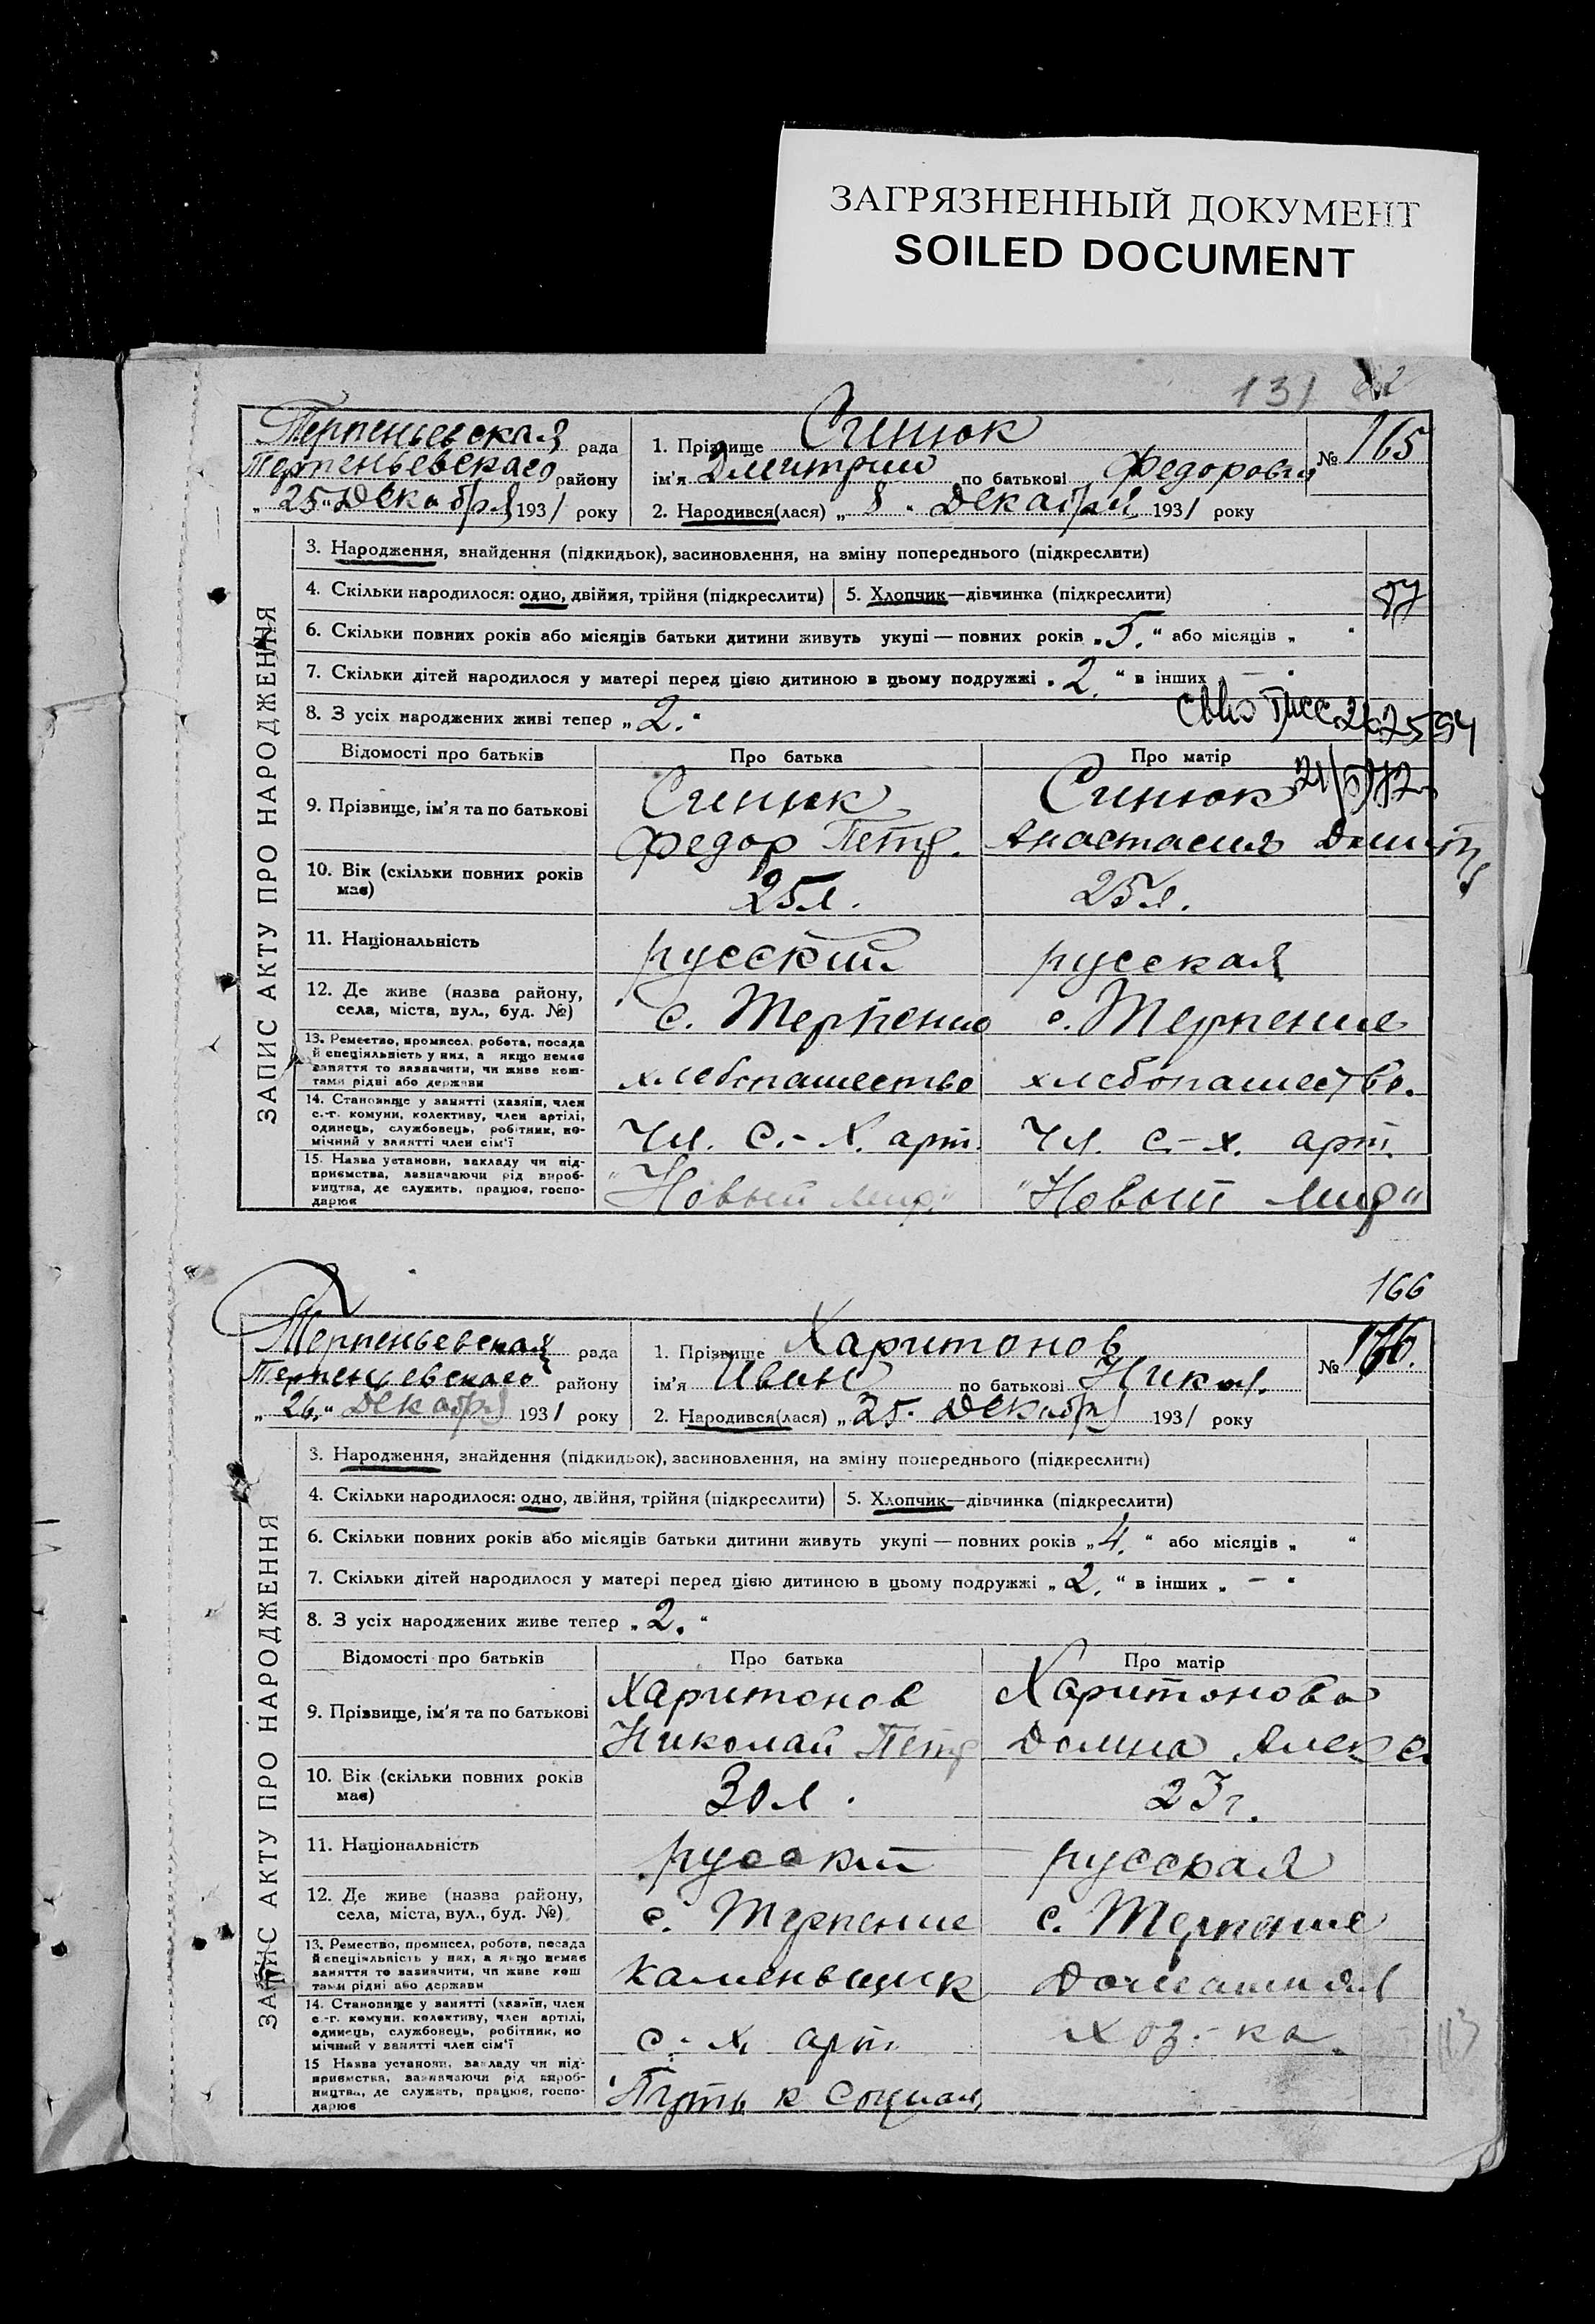 ЗАГРЯЗНЕННЫЙ ДОКУМЕНТ
SOILED DOCUMENT
131
Терпеньевская рада
Терпеньевского району
„25“ Декабря 1931 року
1. Прізвище Синюк
ім'я Дмитрий по батькові Федоров.
2. Народився(лася) „8“ Декабря 1931 року
№ 165
ЗАПИС АКТУ ПРО НАРОДЖЕННЯ
3. Народження, знайдення (підкидьок), засиновлення, на зміну попереднього (підкреслити)
4. Скільки народилося: одно, двійня, трійня (підкреслити) 5. Хлопчик—дівчинка (підкреслити)
87
6. Скільки повних років або місяців батьки дитини живуть укупі — повних років „5.“ або місяців „ “
7. Скільки дітей народилося у матері перед цією дитиною в цьому подружжі „2.“ в інших „—“
8. З усіх народжених живі тепер „2.“
Відомості про батьків Про батька Про матір
9. Прізвище, ім'я та по батькові
Синюк Синюк
Федор Петр. Анастасия Дмитр
10. Вік (скільки повних років має) 25 л. 25 л.
11. Національність русский русская
12. Де живе (назва району, села, міста, вул., буд. №) с. Терпение с. Терпение
13. Ремество, промисел, робота, посада й спеціяльність у них, а якщо немає заняття то зазначити, чи живе коштами рідні або держави хлебопашество хлебопашество.
14. Становище у занятті (хазяїн, член с.-г. комуни, колективу, член артілі, одинець, службовець, робітник, помічний у занятті член сім'ї Чл. с.-х. арт. Чл. с-х. арт.
15. Назва установи, закладу чи підприємства, зазначаючи рід виробництва, де служить, працює, господарює "Новый мир" "Новый мир"
166
Терпеньевская рада
Терпеньевского району
„26.“ Декабря 1931 року
1. Прізвище Харитонов
ім'я Иван по батькові Никол.
2. Народився(лася) „25. Декабря 1931 року
№
ЗАПИС АКТУ ПРО НАРОДЖЕННЯ
3. Народження, знайдення (підкидьок), засиновлення, на зміну попереднього (підкреслити)
4. Скільки народилося: одно, двійня, трійня (підкреслити) 5. Хлопчик—дівчинка (підкреслити)
6. Скільки повних років або місяців батьки дитини живуть укупі — повних років „4.“ або місяців „ “
7. Скільки дітей народилося у матері перед цією дитиною в цьому подружжі „2.“ в інших „—“
8. З усіх народжених живе тепер „2.“
Відомості про батьків Про батька Про матір
9. Прізвище, ім'я та по батькові
Харитонов Харитонова
Николай Петр Домна Алекс
10. Вік (скільки повних років має) 30 л. 23 г.
11. Національність русский русская
12. Де живе (назва району, села, міста, вул., буд. №) с. Терпение с. Терпение
13. Ремество, промисел, робота, посада й спеціяльність у них, а якщо немає заняття то зазначити, чи живе коштами рідні або держави каменьщик Домашняя
14. Становище у занятті (хазяїн, член с.-г. комуни, колективу, член артілі, одинець, службовець, робітник, помічний у занятті член сім'ї с.-х. арт. хоз.-ка.
15 Назва установи, закладу чи підприємства, зазначаючи рід виробництва, де служить, працює, господарює "Путь к Социал.
113